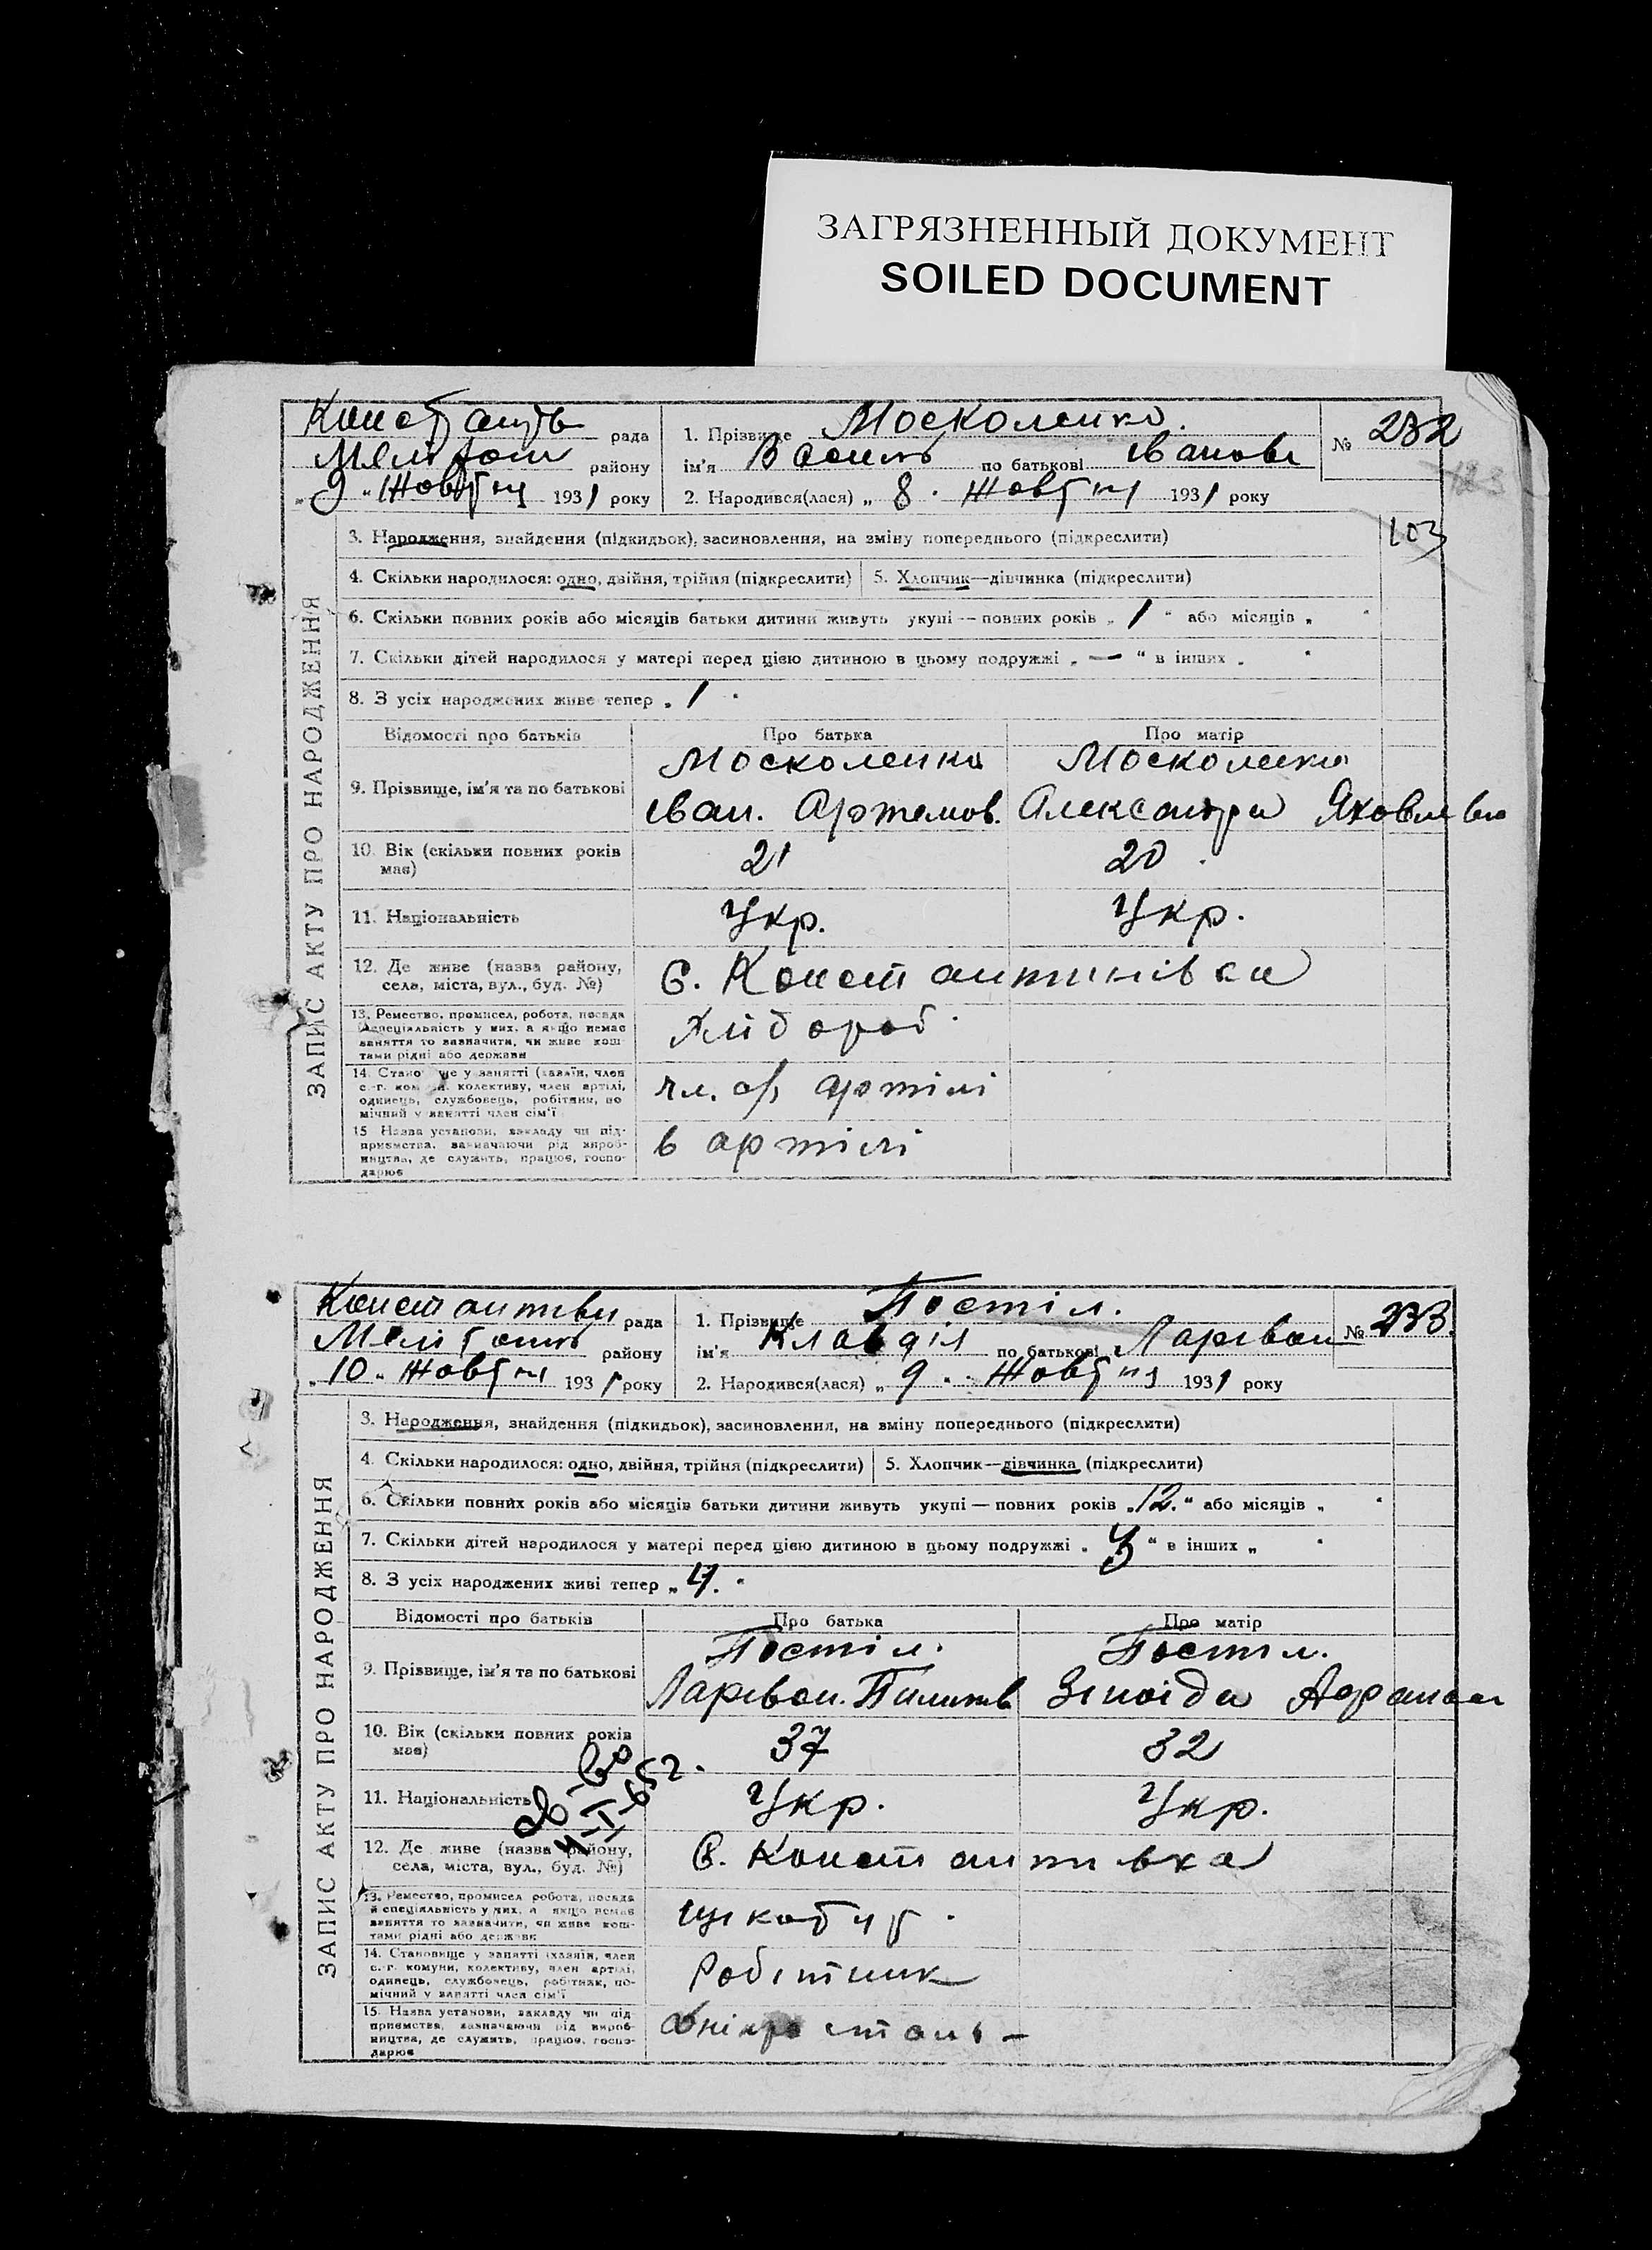 ЗАГРЯЗНЕННЫЙ ДОКУМЕНТ
SOILED DOCUMENT
рада
району
„ 9 “ Жовтня 1931 року
1. Прізвище Москоленко.
ім'я Василь по батькові Іванов
2. Народився(лася) „ 8 . Жовтня 1931 року
№ 232
103
ЗАПИС АКТУ ПРО НАРОДЖЕННЯ
3. Народження, знайдення (підкидьок), засиновлення, на зміну попереднього (підкреслити)
4. Скільки народилося: одно, двійня, трійня (підкреслити) 5. Хлопчик—дівчинка (підкреслити)
6. Скільки повних років або місяців батьки дитини живуть укупі — повних років „ 1 “ або місяців „
7. Скільки дітей народилося у матері перед цією дитиною в цьому подружжі „ — “ в інших „
8. З усіх народжених живе тепер „ 1
Відомості про батьків Про батька Про матір
9. Прізвище, ім'я та по батькові
Москоленко Москоленко
Іван. Артемов. Александра
10. Вік (скільки повних років має) 21 20
11. Національність Укр. Укр.
12. Де живе (назва району, села, міста, вул., буд. №) С. Константинівка
13. Ремество, промисел, робота, посада й спеціяльність у них, а якщо немає заняття то зазначити, чи живе коштами рідні або держави
Хлібороб
14. Становище у занятті (хазяїн, член с.-г. комуни, колективу, член артілі, одинець, службовець, робітник, помічний у занятті член сім'ї
чл. с/г артілі
15 Назва установи, закладу чи підприємства, зазначаючи рід виробництва, де служить, працює, господарює
в артілі
рада
району
„ 10 „ Жовтня 1931 року
1. Прізвище Постіл.
ім'я Клавдія по батькові Ларівон
2. Народився(лася) „ 9 . Жовтня 1931 року
№ 233.
ЗАПИС АКТУ ПРО НАРОДЖЕННЯ
3. Народження, знайдення (підкидьок), засиновлення, на зміну попереднього (підкреслити)
4. Скільки народилося: одно, двійня, трійня (підкреслити) 5. Хлопчик—дівчинка (підкреслити)
6. Скільки повних років або місяців батьки дитини живуть укупі — повних років „ 12. “ або місяців „
7. Скільки дітей народилося у матері перед цією дитиною в цьому подружжі „ 3 “ в інших „
8. З усіх народжених живі тепер „ 4. “
Відомості про батьків Про батька Про матір
9. Прізвище, ім'я та по батькові
Постіл. Постіл.
Ларівон. Зіноіда
10. Вік (скільки повних років має) 37 32
11. Національність Укр. Укр.
12. Де живе (назва району, села, міста, вул., буд. №) С. Константивка
13. Ремество, промисел робота, посада й спеціяльність у них, а якщо немає заняття то зазначити, чи живе коштами рідні або держави
щикатур
14. Становище у занятті (хазяїн, член с.-г. комуни, колективу, член артілі, одинець, службовець, робітник, помічний у занятті член сім'ї
Робітник
15. Назва установи, закладу чи підприємства, зазначаючи рід виробництва, де служить, працює, господарює
Дніпросталь